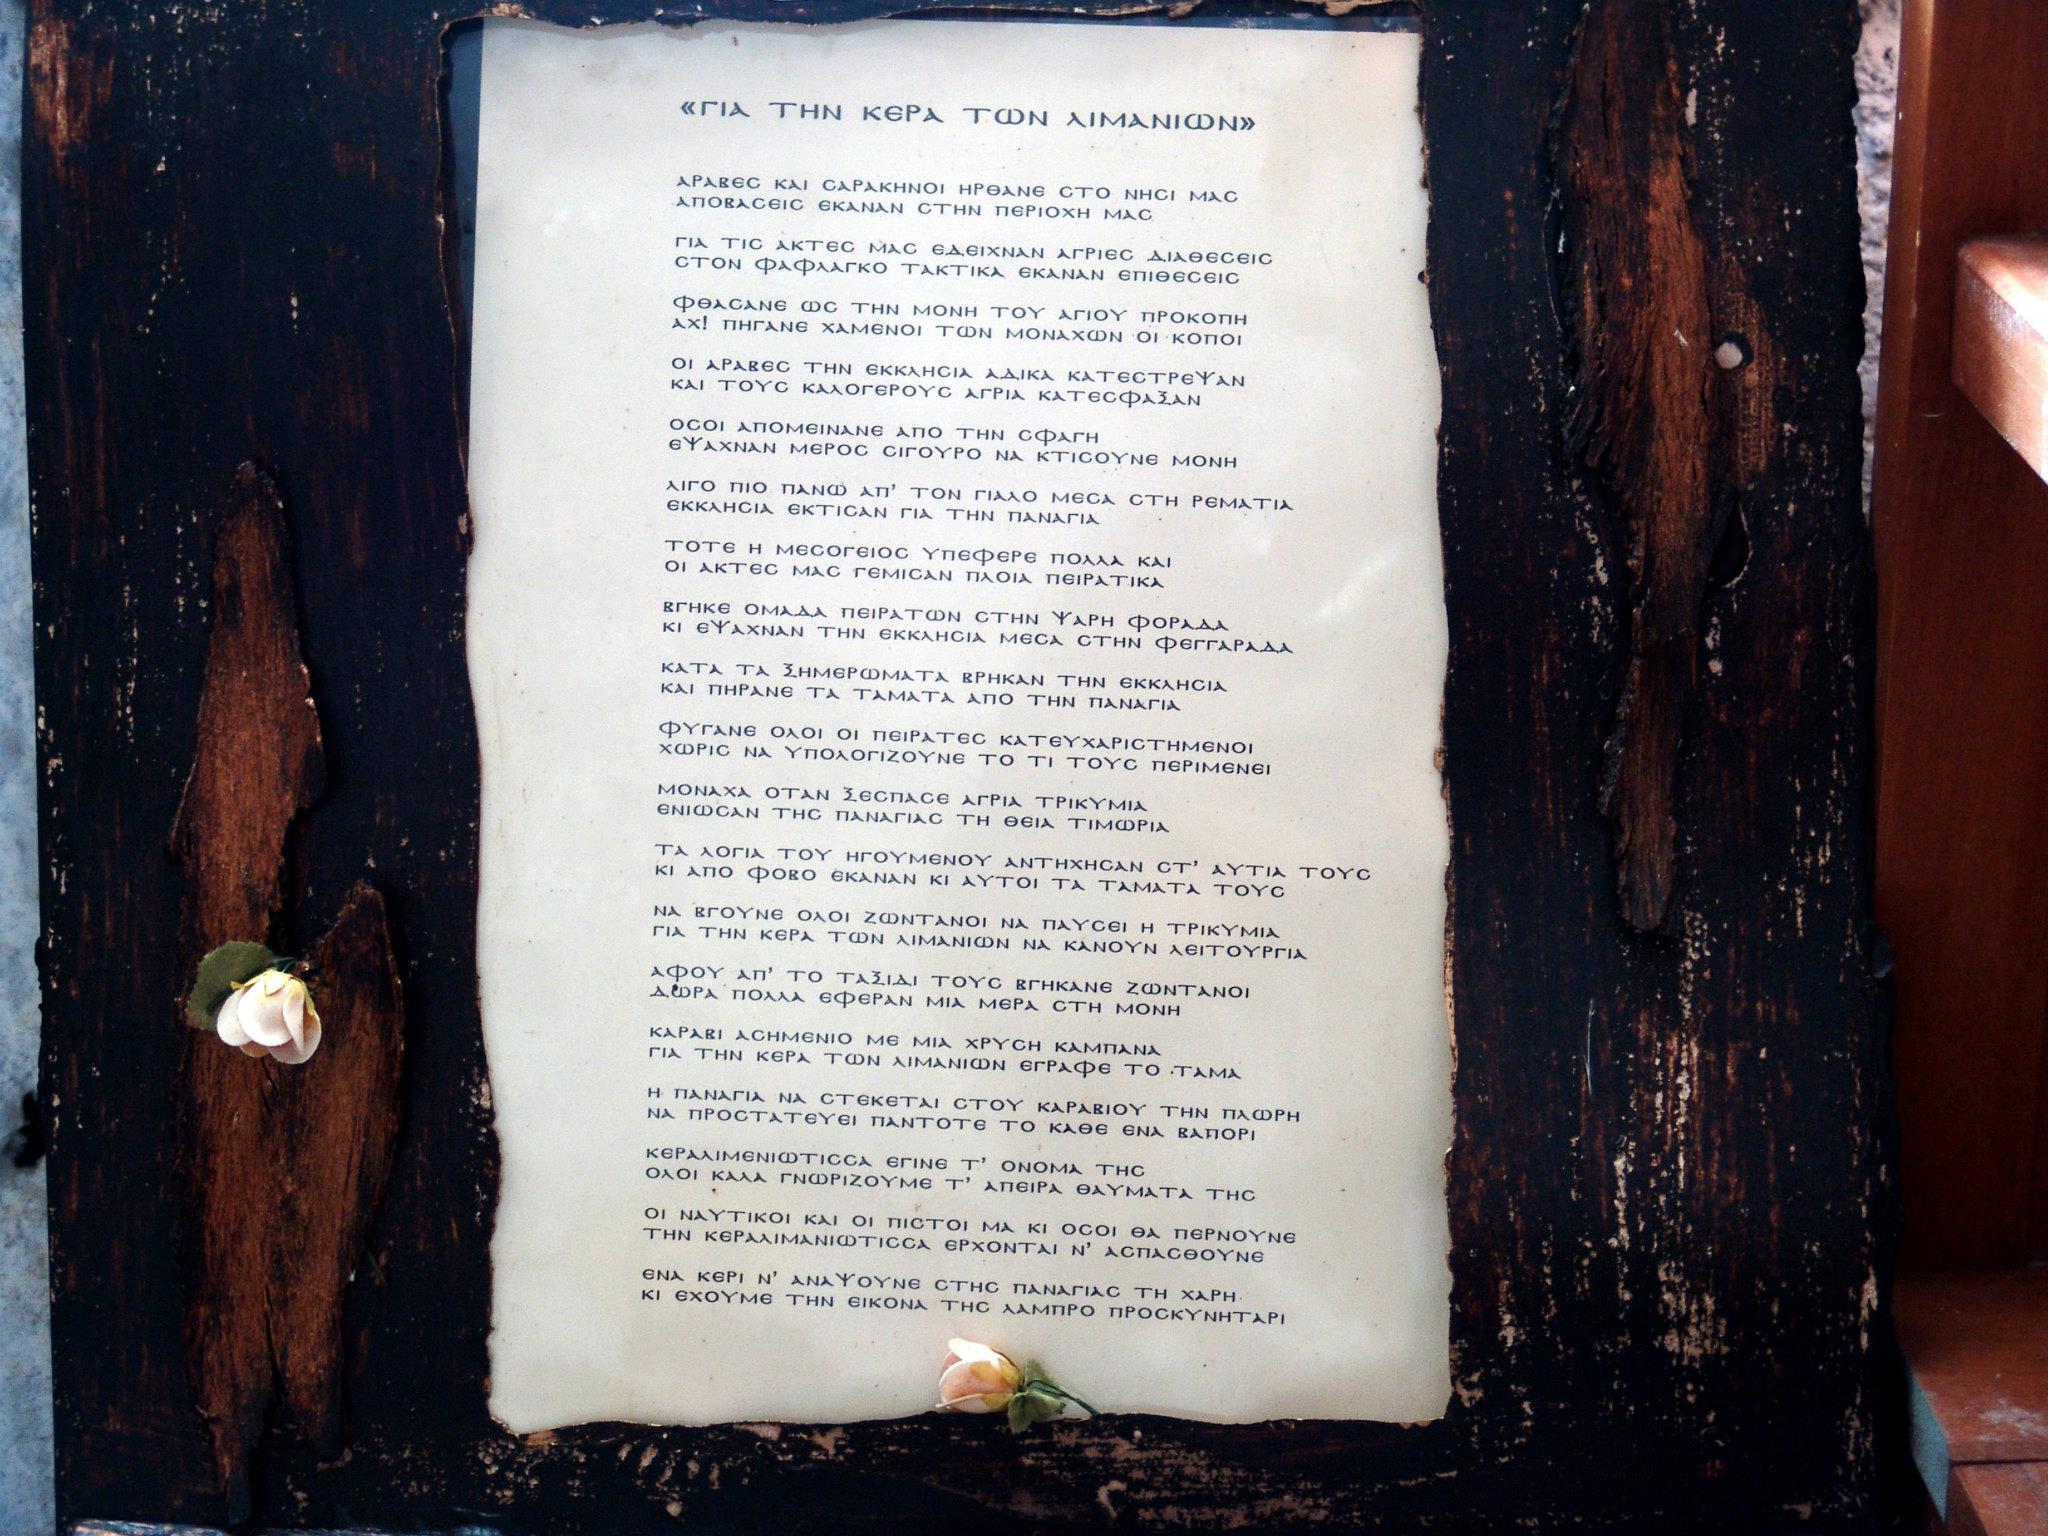 «ΓΙΑ ΤΗΝ ΚΕΡΑ ΤΩΝ ΛΙΜΑΝΙΩΝ»
ΑΡΑΒΕΣ ΚΑΙ ΣΑΡΑΚΗΝΟΙ ΗΡΘΑΝΕ ΣΤΟ ΝΗΣΙ ΜΑΣ
ΑΠΟΒΑΣΕΙΣ ΕΚΑΝΑΝ ΣΤΗΝ ΠΕΡΙΟΧΗ ΜΑΣ
ΓΙΑ ΤΙΣ ΑΚΤΕΣ ΜΑΣ ΕΔΕΙΧΝΑΝ ΑΓΡΙΕΣ ΔΙΑΘΕΣΕΙΣ
ΣΤΟΝ ΦΑΦΛΑΓΚΟ ΤΑΚΤΙΚΑ ΕΚΑΝΑΝ ΕΠΙΘΕΣΕΙΣ
ΦΘΑΣΑΝΕ ΩΣ ΤΗΝ ΜΟΝΗ ΤΟΥ ΑΓΙΟΥ ΠΡΟΚΟΠΗ
ΑΧ! ΠΗΓΑΝΕ ΧΑΜΕΝΟΙ ΤΩΝ ΜΟΝΑΧΩΝ ΟΙ ΚΟΠΟΙ
ΟΙ ΑΡΑΒΕΣ ΤΗΝ ΕΚΚΛΗΣΙΑ ΑΔΙΚΑ ΚΑΤΕΣΤΡΕΨΑΝ
ΚΑΙ ΤΟΥΣ ΚΑΛΟΓΕΡΟΥΣ ΑΓΡΙΑ ΚΑΤΕΣΦΑΞΑΝ
ΟΣΟΙ ΑΠΟΜΕΙΝΑΝΕ ΑΠΟ ΤΗΝ ΣΦΑΓΗ
ΕΨΑΧΝΑΝ ΜΕΡΟΣ ΣΙΓΟΥΡΟ ΝΑ ΚΤΙΣΟΥΝΕ ΜΟΝΗ
ΛΙΓΟ ΠΙΟ ΠΑΝΩ ΑΠ' ΤΟΝ ΓΙΑΛΟ ΜΕΣΑ ΣΤΗ ΡΕΜΑΤΙΑ
ΕΚΚΛΗΣΙΑ ΕΚΤΙΣΑΝ ΓΙΑ ΤΗΝ ΠΑΝΑΓΙΑ
ΤΟΤΕ Η ΜΕΣΟΓΕΙΟΣ ΥΠΕΦΕΡΕ ΠΟΛΛΑ ΚΑΙ
ΟΙ ΑΚΤΕΣ ΜΑΣ ΓΕΜΙΣΑΝ ΠΛΟΙΑ ΠΕΙΡΑΤΙΚΑ
ΒΓΗΚΕ ΟΜΑΔΑ ΠΕΙΡΑΤΩΝ ΣΤΗΝ ΨΑΡΗ ΦΟΡΑΔΑ
ΚΙ ΕΨΑΧΝΑΝ ΤΗΝ ΕΚΚΛΗΣΙΑ ΜΕΣΑ ΣΤΗΝ ΦΕΓΓΑΡΑΔΑ
ΚΑΤΑ ΤΑ ΞΗΜΕΡΩΜΑΤΑ ΒΡΗΚΑΝ ΤΗΝ ΕΚΚΛΗΣΙΑ
ΚΑΙ ΠΗΡΑΝΕ ΤΑ ΤΑΜΑΤΑ ΑΠΟ ΤΗΝ ΠΑΝΑΓΙΑ
ΦΥΓΑΝΕ ΟΛΟΙ ΟΙ ΠΕΙΡΑΤΕΣ ΚΑΤΕΥΧΑΡΙΣΤΗΜΕΝΟΙ
ΧΩΡΙΣ ΝΑ ΥΠΟΛΟΓΙΖΟΥΝΕ ΤΟ ΤΙ ΤΟΥΣ ΠΕΡΙΜΕΝΕΙ
ΜΟΝΑΧΑ ΟΤΑΝ ΞΕΣΠΑΣΕ ΑΓΡΙΑ ΤΡΙΚΥΜΙΑ
ΕΝΙΩΣΑΝ ΤΗΣ ΠΑΝΑΓΙΑΣ ΤΗ ΘΕΙΑ ΤΙΜΩΡΙΑ
ΤΑ ΛΟΓΙΑ ΤΟΥ ΗΓΟΥΜΕΝΟΥ ΑΝΤΗΧΗΣΑΝ ΣΤ' ΑΥΤΙΑ ΤΟΥΣ
ΚΙ ΑΠΟ ΦΟΒΟ ΕΚΑΝΑΝ ΚΙ ΑΥΤΟΙ ΤΑ ΤΑΜΑΤΑ ΤΟΥΣ
ΝΑ ΒΓΟΥΝΕ ΟΛΟΙ ΖΩΝΤΑΝΟΙ ΝΑ ΠΑΥΣΕΙ Η ΤΡΙΚΥΜΙΑ
ΓΙΑ ΤΗΝ ΚΕΡΑ ΤΩΝ ΛΙΜΑΝΙΩΝ ΝΑ ΚΑΝΟΥΝ ΛΕΙΤΟΥΡΓΙΑ
ΑΦΟΥ ΑΠ' ΤΟ ΤΑΞΙΔΙ ΤΟΥΣ ΒΓΗΚΑΝΕ ΖΩΝΤΑΝΟΙ
ΔΩΡΑ ΠΟΛΛΑ ΕΦΕΡΑΝ ΜΙΑ ΜΕΡΑ ΣΤΗ ΜΟΝΗ
ΚΑΡΑΒΙ ΑΣΗΜΕΝΙΟ ΜΕ ΜΙΑ ΧΡΥΣΗ ΚΑΜΠΑΝΑ
ΓΙΑ ΤΗΝ ΚΕΡΑ ΤΩΝ ΛΙΜΑΝΙΩΝ ΕΓΡΑΦΕ ΤΟ ΤΑΜΑ
Η ΠΑΝΑΓΙΑ ΝΑ ΣΤΕΚΕΤΑΙ ΣΤΟΥ ΚΑΡΑΒΙΟΥ ΤΗΝ ΠΛΩΡΗ
ΝΑ ΠΡΟΣΤΑΤΕΥΕΙ ΠΑΝΤΟΤΕ ΤΟ ΚΑΘΕ ΕΝΑ ΒΑΠΟΡΙ
ΚΕΡΑΛΙΜΕΝΙΩΤΙΣΣΑ ΕΓΙΝΕ Τ' ΟΝΟΜΑ ΤΗΣ
ΟΛΟΙ ΚΑΛΑ ΓΝΩΡΙΖΟΥΜΕ Τ' ΑΠΕΙΡΑ ΘΑΥΜΑΤΑ ΤΗΣ
ΟΙ ΝΑΥΤΙΚΟΙ ΚΑΙ ΟΙ ΠΙΣΤΟΙ ΜΑ ΚΙ ΟΣΟΙ ΘΑ ΠΕΡΝΟΥΝΕ
ΤΗΝ ΚΕΡΑΛΙΜΑΝΙΩΤΙΣΣΑ ΕΡΧΟΝΤΑΙ Ν' ΑΣΠΑΣΘΟΥΝΕ
ΕΝΑ ΚΕΡΙ Ν' ΑΝΑΨΟΥΝΕ ΣΤΗΣ ΠΑΝΑΓΙΑΣ ΤΗ ΧΑΡΗ
ΚΙ ΕΧΟΥΜΕ ΤΗΝ ΕΙΚΟΝΑ ΤΗΣ ΛΑΜΠΡΟ ΠΡΟΣΚΥΝΗΤΑΡΙ